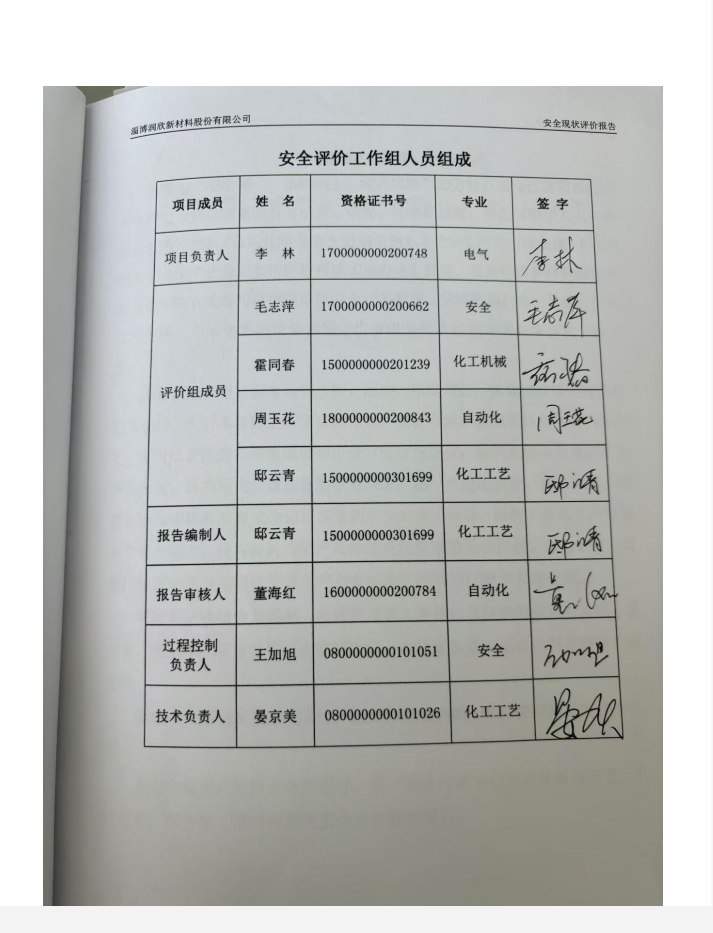 淄博润欣新材料股份有限公司 安全现状评价报告
安全评价工作组人员组成
项目成员 姓 名 资格证书号 专业 签 字
项目负责人 李 林 1700000000200748 电气 李林
评价组成员 毛志萍 1700000000200662 安全 毛志萍
霍同春 1500000000201239 化工机械
周玉花 1800000000200843 自动化 周玉花
邸云青 1500000000301699 化工工艺 邸云青
报告编制人 邸云青 1500000000301699 化工工艺 邸云青
报告审核人 董海红 1600000000200784 自动化
过程控制
负责人 王加旭 0800000000101051 安全
技术负责人 晏京美 0800000000101026 化工工艺